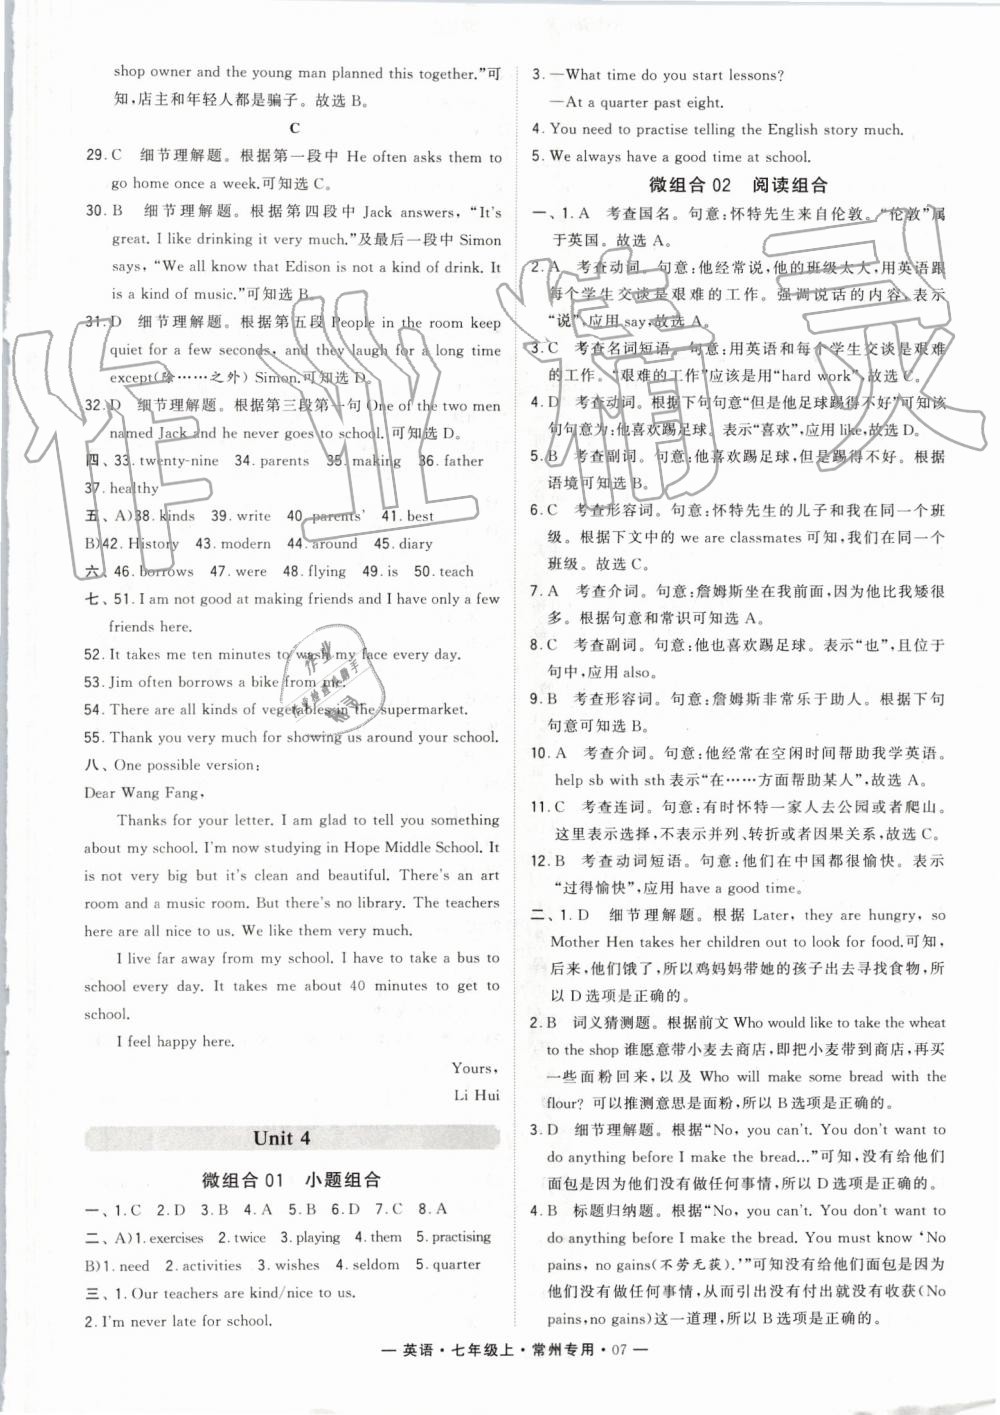 shop owner and the young man planned this together.”可
知,店主和年轻人都是骗子。故选 B。
C
29. C 细节理解题。根据第一段中 He often asks them to
go home once a week.可知选 C。
30. B 细节理解题。根据第四段中 Jack answers, “It's
great. I like drinking it very much.”及最后一段中 Simon
says, “We all know that Edison is not a kind of drink. It
is a kind of music.”可知选 B。
31. D 细节理解题。根据第五段 People in the room keep
quiet for a few seconds, and they laugh for a long time
except(除……之外) Simon.可知选 D。
32. D 细节理解题。根据第三段第一句 One of the two men
named Jack and he never goes to school. 可知选 D。
四、33. twenty-nine 34. parents 35. making 36. father
37. healthy
五、A)38. kinds 39. write 40. parents' 41. best
B)42. History 43. modern 44. around 45. diary
六、46. borrows 47. were 48. flying 49. is 50. teach
七、51. I am not good at making friends and I have only a few
friends here.
52. It takes me ten minutes to wash my face every day.
53. Jim often borrows a bike from me.
54. There are all kinds of vegetables in the supermarket.
55. Thank you very much for showing us around your school.
八、One possible version:
Dear Wang Fang,
Thanks for your letter. I am glad to tell you something
about my school. I'm now studying in Hope Middle School. It
is not very big but it's clean and beautiful. There's an art
room and a music room. But there's no library. The teachers
here are all nice to us. We like them very much.
I live far away from my school. I have to take a bus to
school every day. It takes me about 40 minutes to get to
school.
I feel happy here.
Yours,
Li Hui
Unit 4
微组合 01 小题组合
一、1. C 2. D 3. B 4. A 5. B 6. D 7. C 8. A
二、A)1. exercises 2. twice 3. playing 4. them 5. practising
B)1. need 2. activities 3. wishes 4. seldom 5. quarter
三、1. Our teachers are kind/nice to us.
2. I'm never late for school.
3. —What time do you start lessons?
—At a quarter past eight.
4. You need to practise telling the English story much.
5. We always have a good time at school.
微组合 02 阅读组合
一、1. A 考查国名。句意:怀特先生来自伦敦。“伦敦”属
于英国。故选 A。
2. A 考查动词。句意:他经常说,他的班级太大,用英语跟
每个学生交谈是艰难的工作。强调说话的内容,表示
“说”,应用 say,故选 A。
3. C 考查名词短语。句意:用英语和每个学生交谈是艰难
的工作。“艰难的工作”应该是用“hard work”,故选 C。
4. D 考查动词。根据下句句意“但是他足球踢得不好”可知该
句句意为:他喜欢踢足球。表示“喜欢”,应用 likes,故选 D。
5. B 考查副词。句意:他喜欢踢足球,但是踢得不好。根据
语境可知选 B。
6. C 考查形容词。句意:怀特先生的儿子和我在同一个班
级。根据下文中的 we are classmates 可知,我们在同一个
班级。故选 C。
7. A 考查介词。句意:詹姆斯坐在我前面,因为我比他矮很
多。根据句意和常识可知选 A。
8. C 考查副词。句意:他也喜欢踢足球。表示“也”,且位于
句中,应用 also。
9. B 考查形容词。句意:詹姆斯非常乐于助人。根据下句
句意可知选 B。
10. A 考查介词。句意:他经常在空闲时间帮助我学英语。
help sb with sth 表示“在……方面帮助某人”,故选 A。
11. C 考查连词。句意:有时怀特一家人去公园或者爬山。
这里表示选择,不表示并列、转折或者因果关系,故选 C。
12. B 考查动词短语。句意:他们在中国都很愉快。表示
“过得愉快”,应用 have a good time。
二、1. D 细节理解题。根据 Later, they are hungry, so
Mother Hen takes her children out to look for food.可知,
后来,他们饿了,所以鸡妈妈带她的孩子出去寻找食物,所
以 D 选项是正确的。
2. B 词义猜测题。根据前文 Who would like to take the wheat
to the shop 谁愿意带小麦去商店,即把小麦带到商店,再买
一些面粉回来,以及 Who will make some bread with the
flour? 可以推测意思是面粉,所以 B 选项是正确的。
3. D 细节理解题。根据“No, you can't. You don't want to
do anything before I make the bread...”可知,没有给他们
面包是因为他们没有做任何事情,所以 D 选项是正确的。
4. B 标题归纳题。根据“No, you can't. You don't want to
do anything before I make the bread. You must know ‘No
pains, no gains(不劳无获).’”可知没有给他们面包是因为
他们没有做任何事情,从而引出没有付出就没有收获(No
pains, no gains)这一道理,所以 B 选项是正确的。
— 英语·七年级上·常州专用·07 —
作业精灵